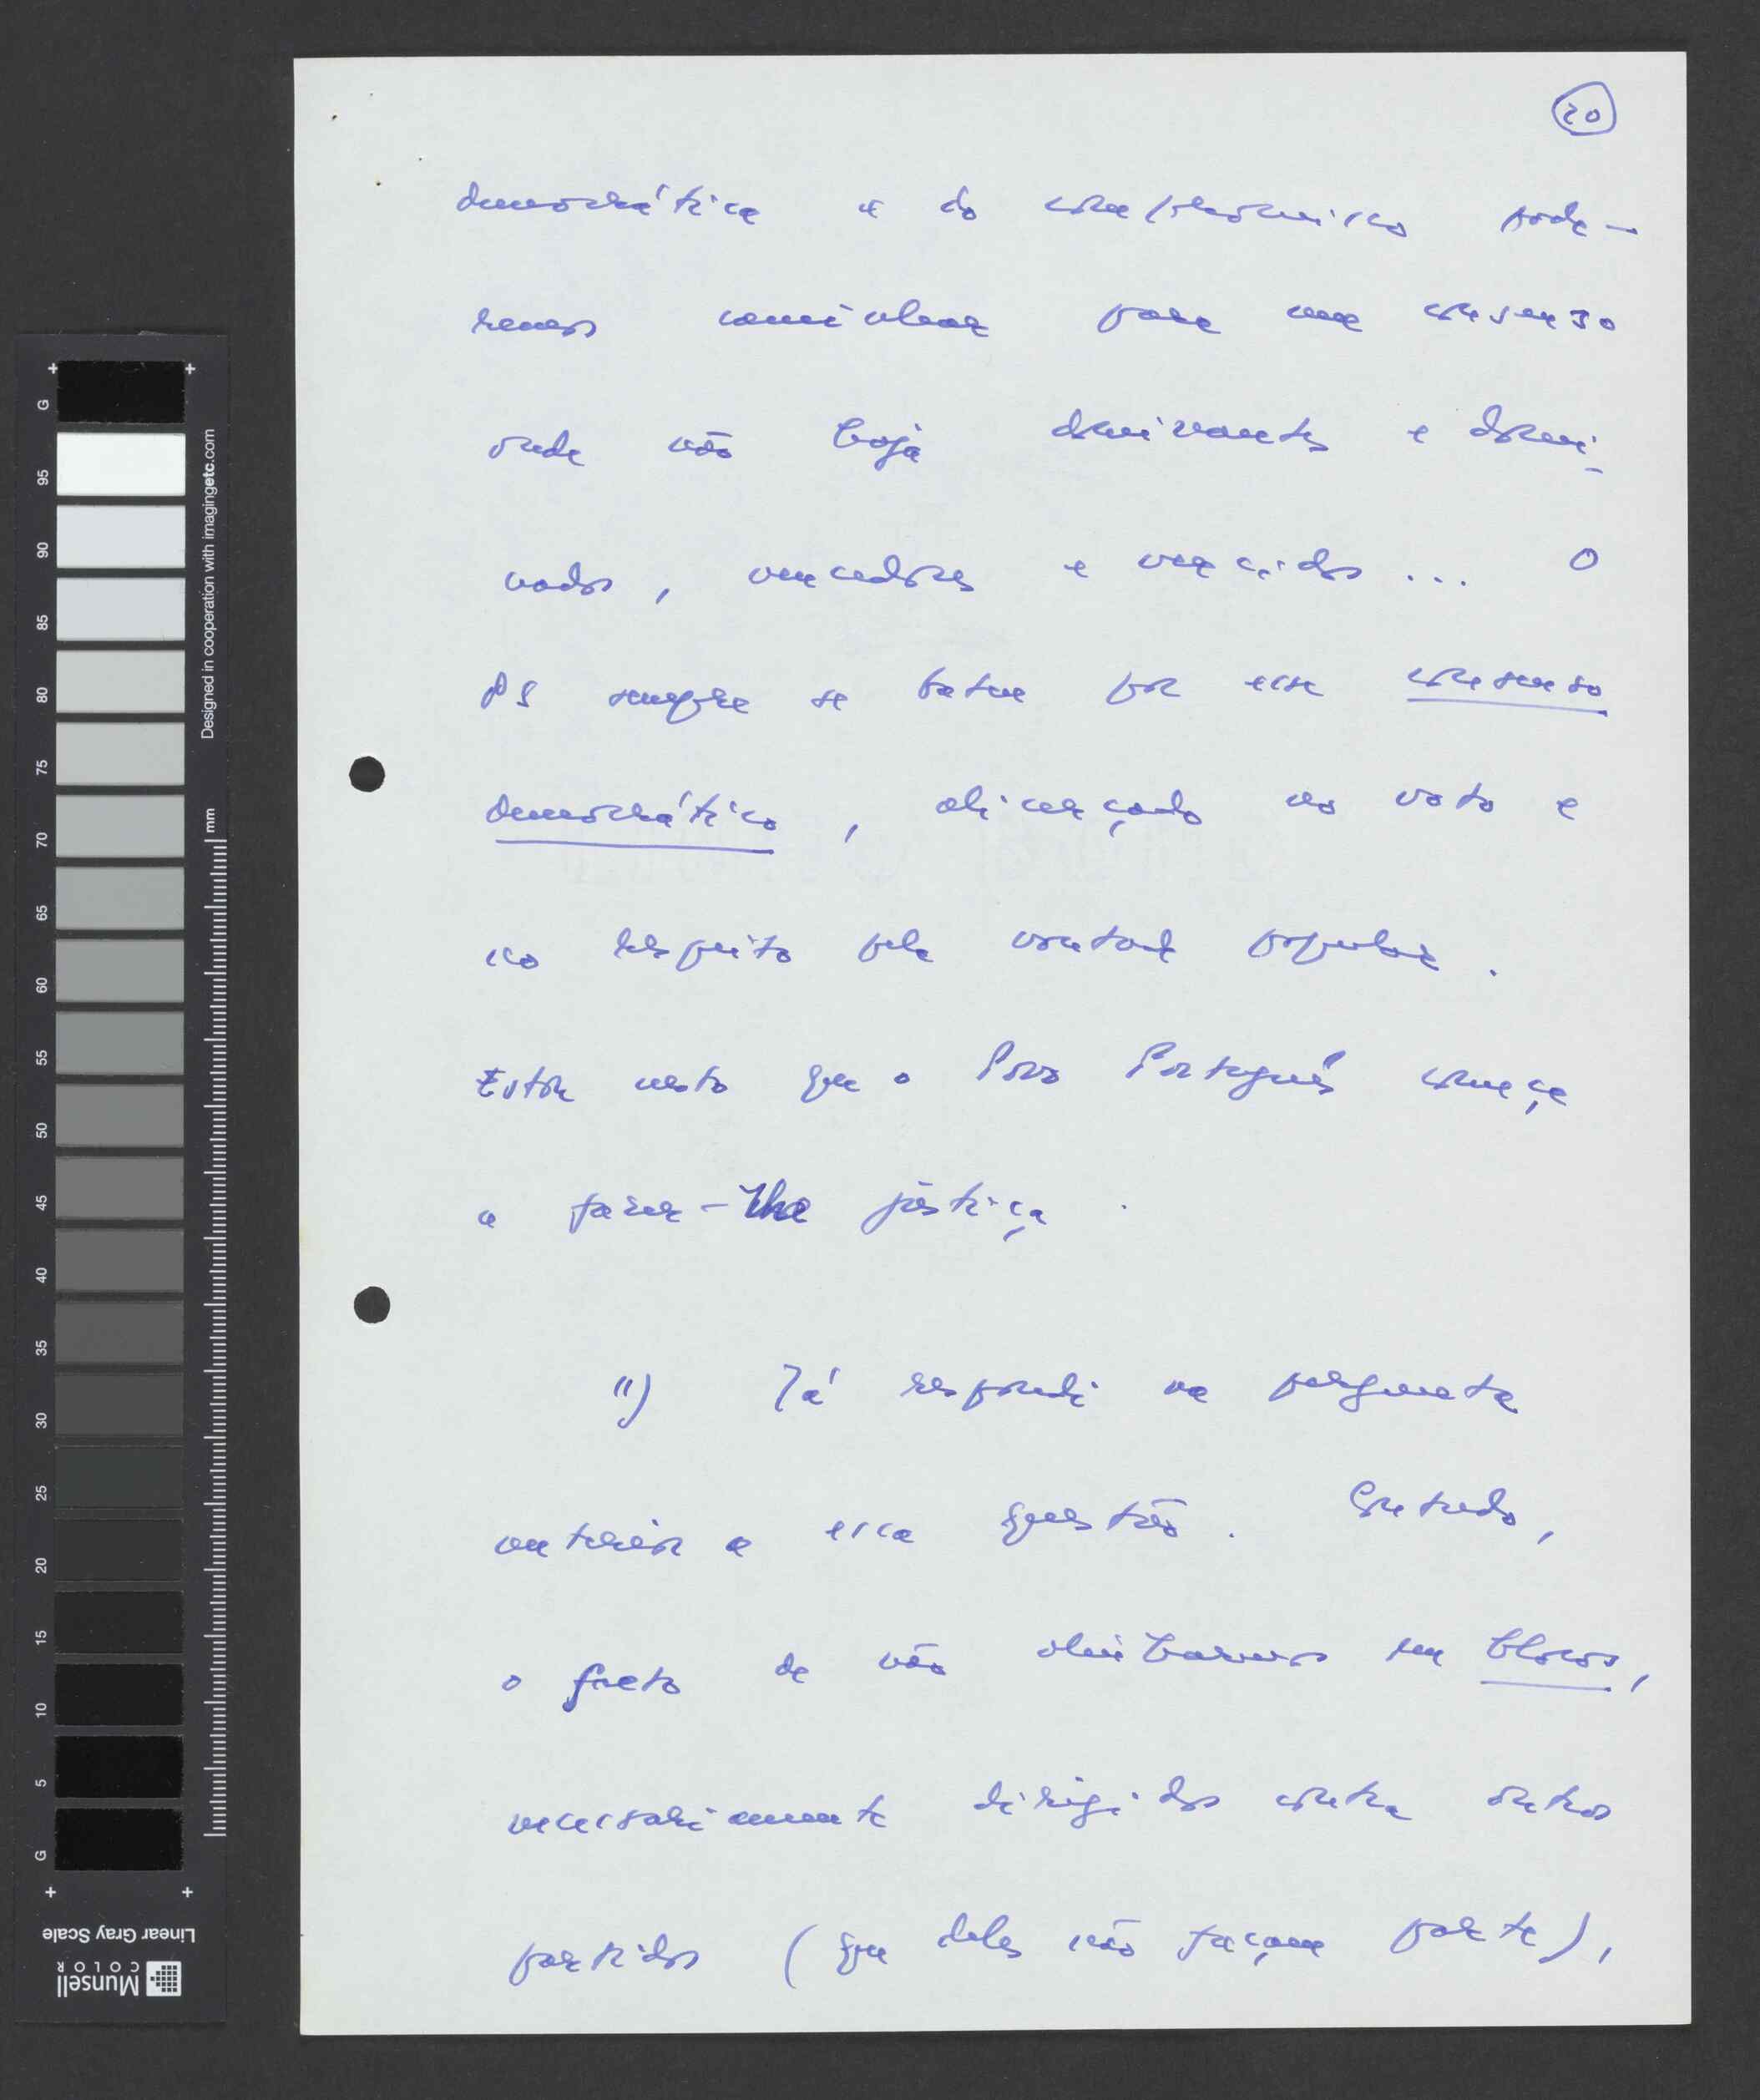 20
democrática e do compromisso pode-
remos caminhar para um consenso
onde não haja dominantes e domi-
nados, vencedores e vencidos... O
PS sempre se bateu por esse consenso
democrático, alicerçado no voto e
no respeito pela vontade popular.
Estou certo que o Povo Português começa
a fazer-lhe justiça.
11) Já respondi na pergunta
anterior a essa questão. Contudo,
o facto de não alinharmos em blocos,
necessariamente dirigidos contra outros
partidos (que deles não façam parte),
G
95
90
85
80
75
70
65
60
55
50
45
40
35
30
25
20
15
10
5
G
Designed in cooperation with imagingetc.com
mm
Linear Gray Scale
Munsell
COLOR